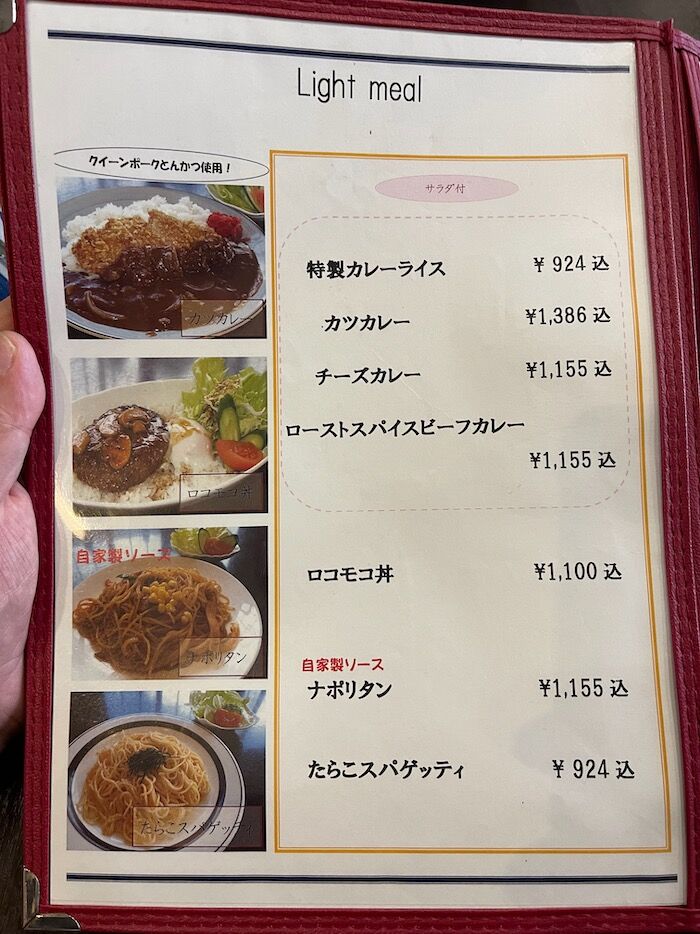 Light meal
クイーンポークとんかつ使用！
カツカレー
ロコモコ丼
自家製ソース
ナポリタン
たらこスパゲッティ
サラダ付
特製カレーライス ¥ 924 込
カツカレー ¥1,386 込
チーズカレー ¥1,155 込
ローストスパイスビーフカレー
¥1,155 込
ロコモコ丼 ¥1,100 込
自家製ソース
ナポリタン ¥1,155 込
たらこスパゲッティ ¥ 924 込